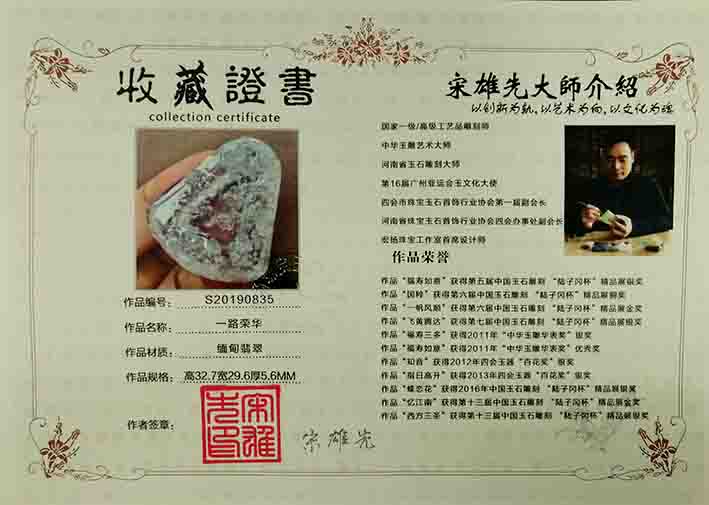 收藏證書
collection certificate
作品编号: S20190835
作品名称: 一路荣华
作品材质: 缅甸翡翠
作品规格: 高32.7宽29.6厚5.6MM
作者签章:
宋雄先印
宋雄先
宋雄先大師介紹
以创新为轨,以艺术为向,以文化为魂
国家一级/高级工艺品雕刻师
中华玉雕艺术大师
河南省玉石雕刻大师
第16届广州亚运会玉文化大使
四会市珠宝玉石首饰行业协会第一届副会长
河南省珠宝玉石首饰行业协会四会办事处副会长
宏扬珠宝工作室首席设计师
作品荣誉
作品“福寿如意”获得第五届中国玉石雕刻 “陆子冈杯”精品展银奖
作品“国粹”获得第六届中国玉石雕刻 “陆子冈杯”精品展铜奖
作品“一帆风顺”获得第六届中国玉石雕刻 “陆子冈杯”精品展金奖
作品“飞黄腾达”获得第七届中国玉石雕刻 “陆子冈杯”精品展银奖
作品“福寿三多”获得2011年“中华玉雕华表奖”银奖
作品“福寿如意”获得2011年“中华玉雕华表奖”优秀奖
作品“知音”获得2012年四会玉器“百花奖”银奖
作品“指日高升”获得2013年四会玉器“百花奖”银奖
作品“蝶恋花”获得2016年中国玉石雕刻 “陆子冈杯”精品展银奖
作品“忆江南”获得第十三届中国玉石雕刻 “陆子冈杯”精品展金奖
作品“西方三圣”获得第十三届中国玉石雕刻 “陆子冈杯”精品展银奖